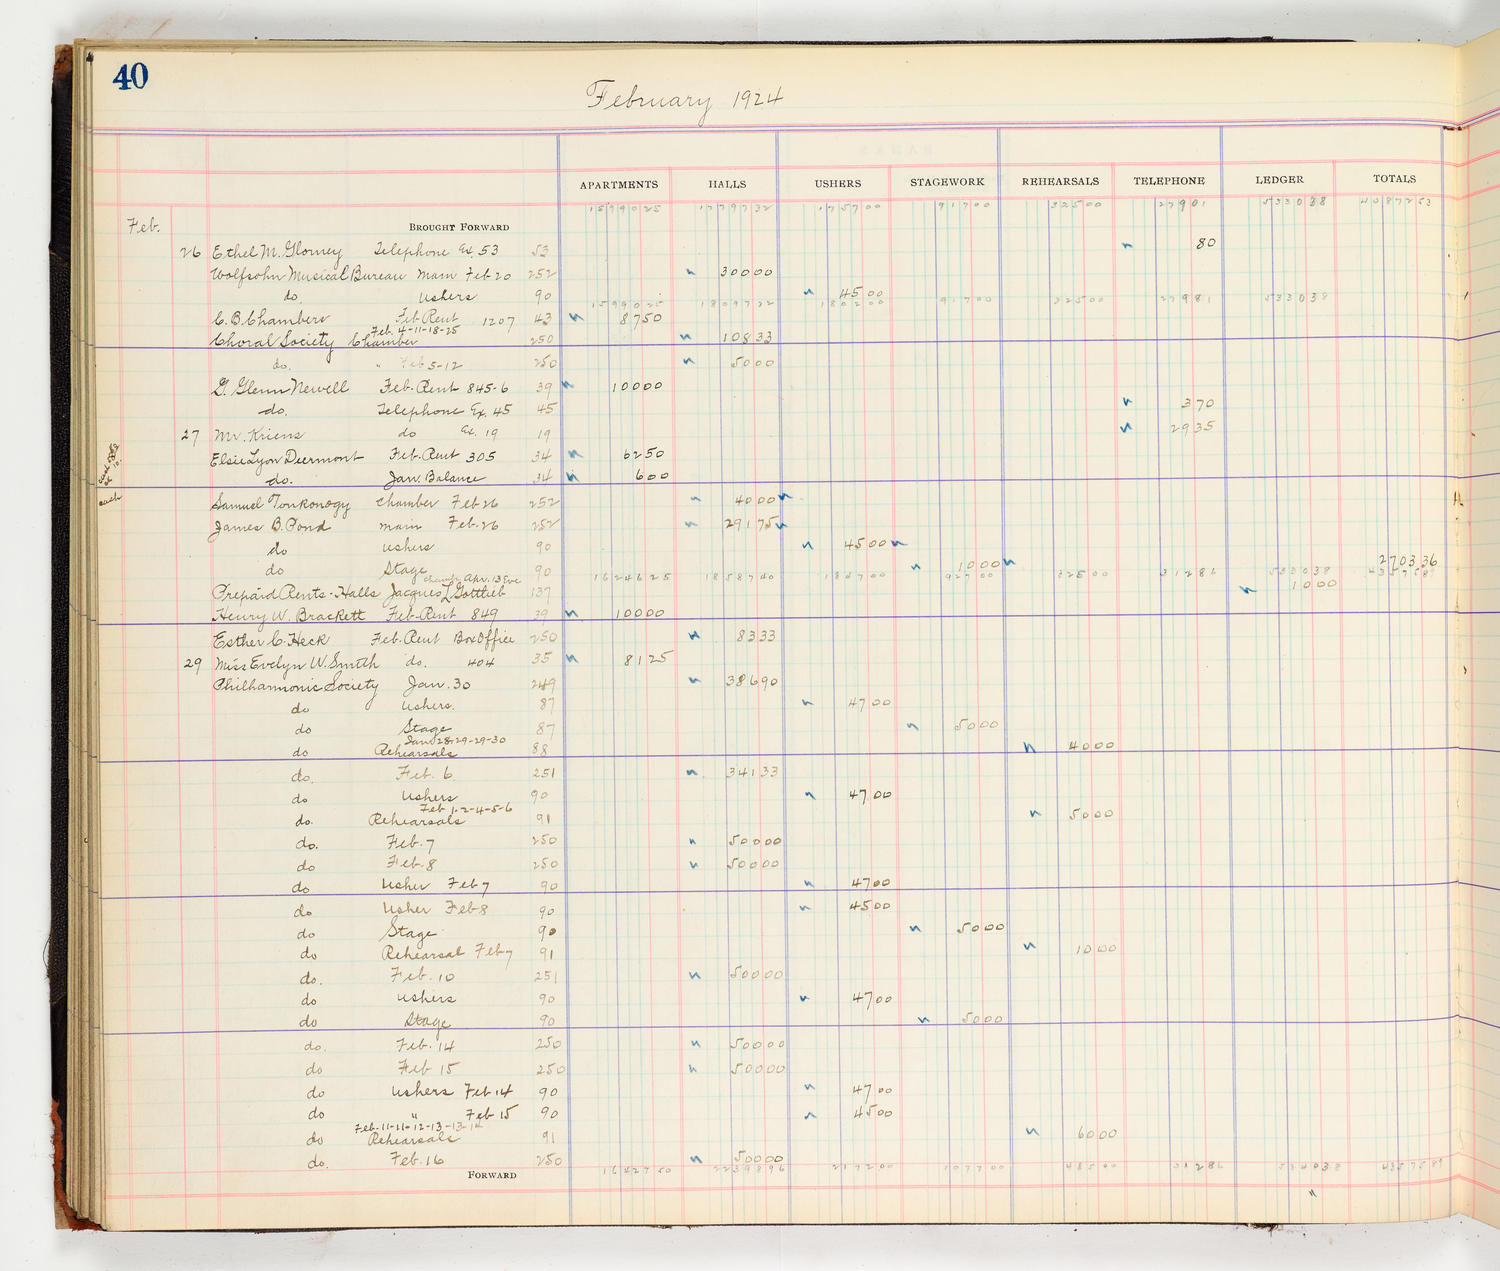 40
February 1924
APARTMENTS HALLS USHERS STAGEWORK REHEARSALS TELEPHONE LEDGER TOTALS
Feb. BROUGHT FORWARD 1579025 1779732 175700 91700 32500 27901 533038 4087253
26 Ethel M. Glorney Telephone Ex. 53 53 80
Wolfsohn Musical Bureau Main Feb 20 252 30000
do. Ushers 90 4500
1599025 1809732 180200 91700 32500 27981 533038
C. B. Chambers Feb Rent 1207 43 8750
Feb. 4-11-18-25
Choral Society Chamber 250 10833
do. " Feb 5-12 250 5000
G. Glenn Newell Feb. Rent 845-6 39 10000
do. Telephone Ex. 45 45 370
27 Mr. Kriens do Ex. 19 19 2935
Elsie Lyon Deermont Feb. Rent 305 34 6250
do. Jan. Balance 34 600
cash Samuel Tonkonogy Chamber Feb 26 252 4000
James B. Pond main Feb. 26 252 29175
do Ushers 90 4500
do Stage 90 1000 270336
Chamb. Apr. 13 Eve 1624625 1858740 184700 92700 32500 31286 533038
Prepaid Rents-Halls Jacques L Gottlieb 137 1000
Henry W. Brackett Feb-Rent 849 39 10000
Esther C. Heck Feb. Rent Box Office 250 8333
29 Miss Evelyn W. Smith do. 404 35 8125
Philharmonic Society Jan. 30 249 38690
do Ushers. 87 4700
do Stage 87 5000
Jan. 28-29-29-30
do Rehearsals 88 4000
do. Feb. 6 251 34133
do Ushers 90 4700
Feb 1-2-4-5-6
do. Rehearsals 91 5000
do. Feb. 7 250 50000
do Feb. 8 250 50000
do Usher Feb 7 90 4700
do Usher Feb 8 90 4500
do Stage 90 5000
do Rehearsal Feb 7 91 1000
do. Feb. 10 251 50000
do Ushers 90 4700
do Stage 90 5000
do. Feb. 14 250 50000
do Feb 15 250 50000
do Ushers Feb 14 90 4700
do " Feb 15 90 4500
Feb. 11-11-12-13-13-14
do Rehearsals 91 6000
do. Feb. 16 250 50000
FORWARD 1642750 2239896 217200 107700 48500 31286 534038 4357589
"